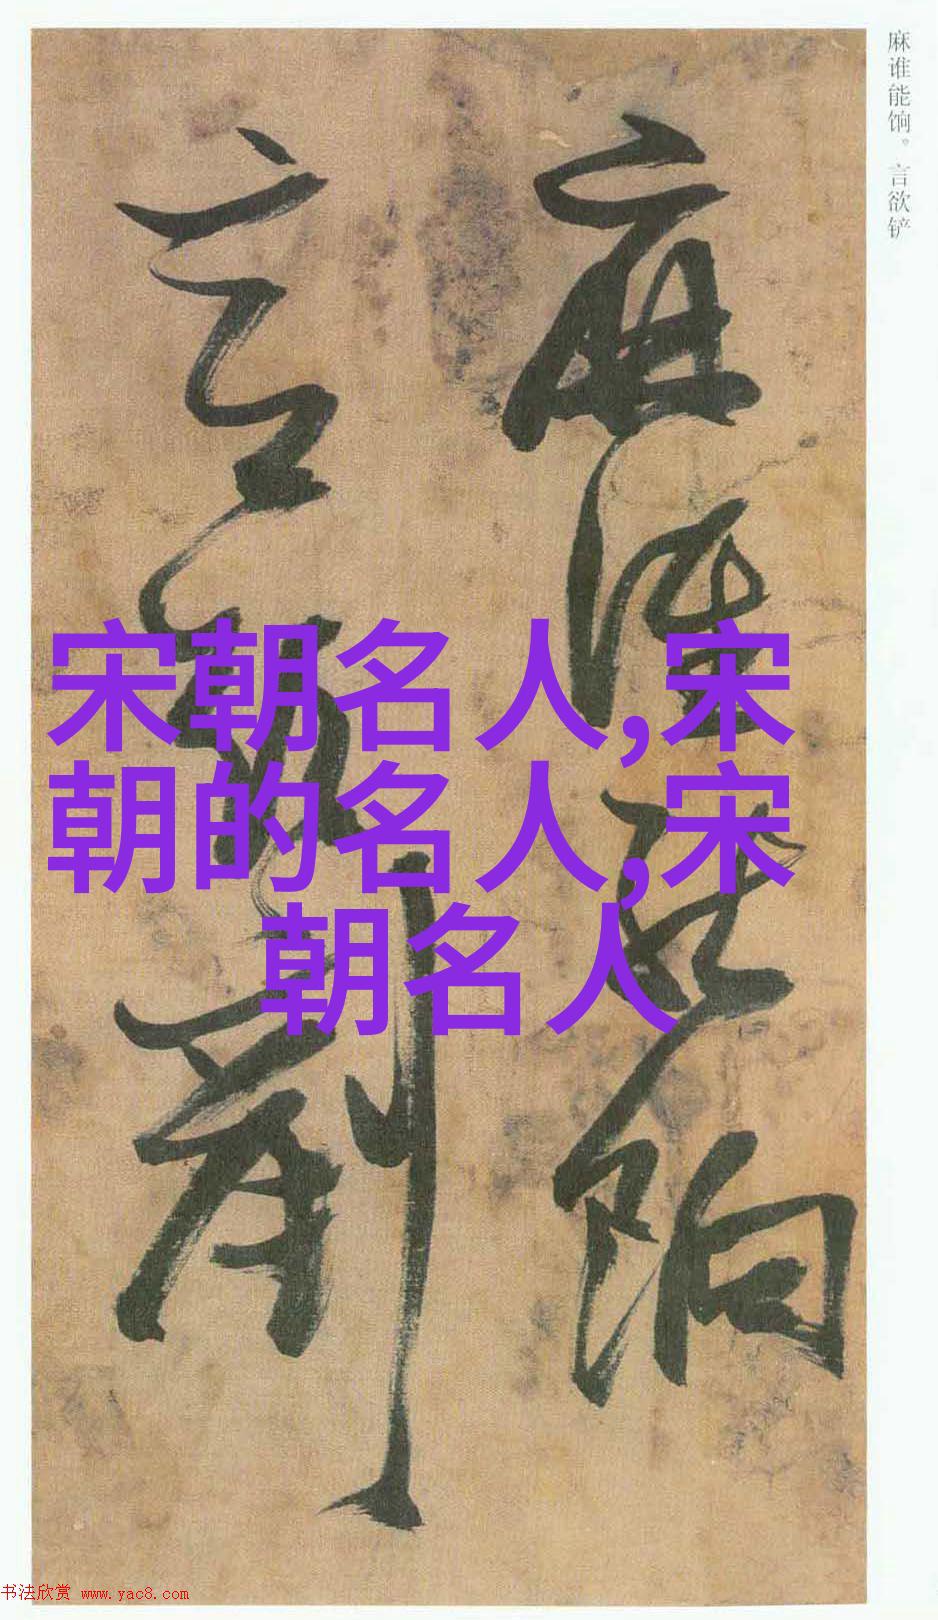 麻谁能饷。言欲铲
麻谁能饷
言欲剷
宋朝名人,宋
朝的名人,宋
朝名人
书法欣赏 www.yac8.com